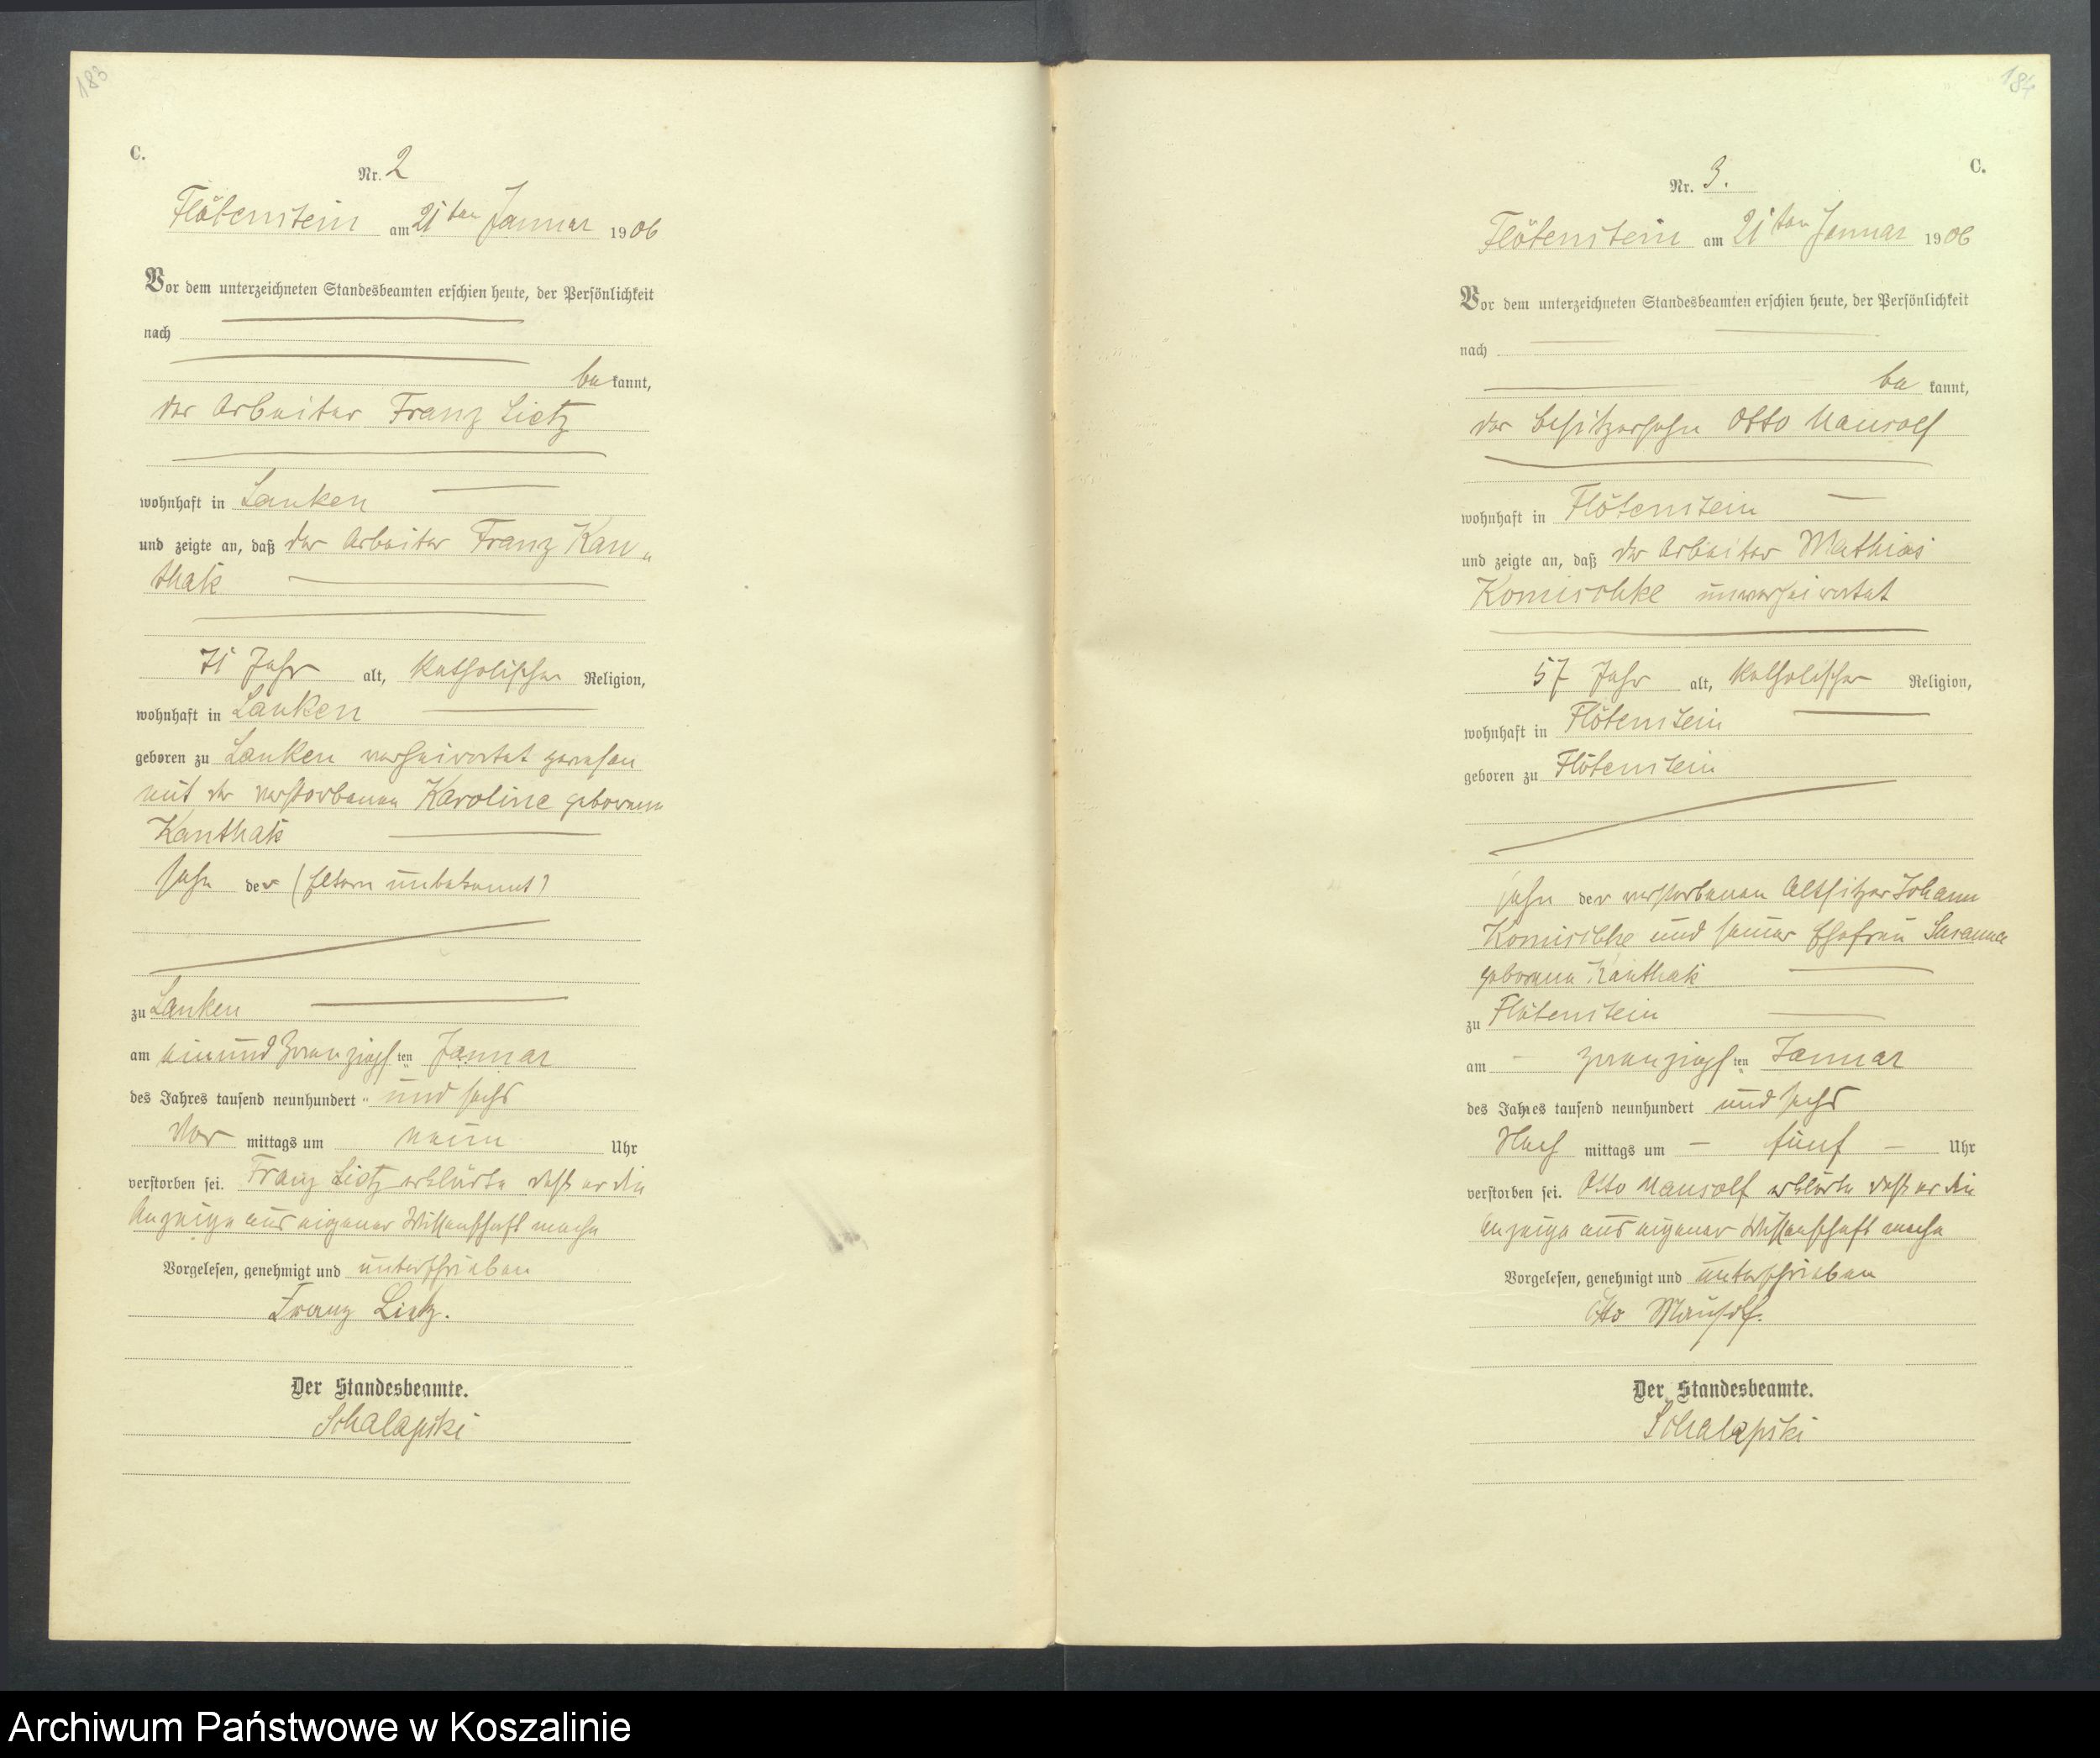 183
C.
Nr. 2
Flötenstein am 21ten Januar 1906
Vor dem unterzeichneten Standesbeamten erschien heute, der Persönlichkeit
nach
bekannt,
der Arbeiter Franz Lietz
wohnhaft in Lanken
und zeigte an, daß der Arbeiter Franz Kan„
thak
71 Jahr alt, katholischer Religion,
wohnhaft in Lanken
geboren zu Lanken verheirathet gewesen
mit der verstorbenen Karoline geborenen
Kanthak
Sohn der (Eltern unbekannt)
zu Lanken
am einundzwanzigsten Januar
des Jahres tausend neunhundert und sechs
Vor mittags um neun Uhr
verstorben sei. Franz Lietz erklärte daß er die
Anzeige aus eigener Wissenschaft mache
Vorgelesen, genehmigt und unterschrieben
Franz Lietz.
Der Standesbeamte.
Schalapski
184
C.
Nr. 3.
Flötenstein am 21ten Januar 1906
Vor dem unterzeichneten Standesbeamten erschien heute, der Persönlichkeit
nach
bekannt,
der Besitzersohn Otto Mausolf
wohnhaft in Flötenstein
und zeigte an, daß der Arbeiter Mathias
Komischke unverheirathet
57 Jahr alt, katholischer Religion,
wohnhaft in Flötenstein
geboren zu Flötenstein
Sohn der verstorbenen Altsitzer Johann
Komischke und seiner Ehefrau Susanna
geborene Kanthak
zu Flötenstein
am zwanzigsten Januar
des Jahres tausend neunhundert und sechs
Nach mittags um fünf Uhr
verstorben sei. Otto Mausolf erklärte daß er die
Anzeige aus eigener Wissenschaft mache
Vorgelesen, genehmigt und unterschrieben
Otto Mausolf.
Der Standesbeamte.
Schalapski
Archiwum Państwowe w Koszalinie